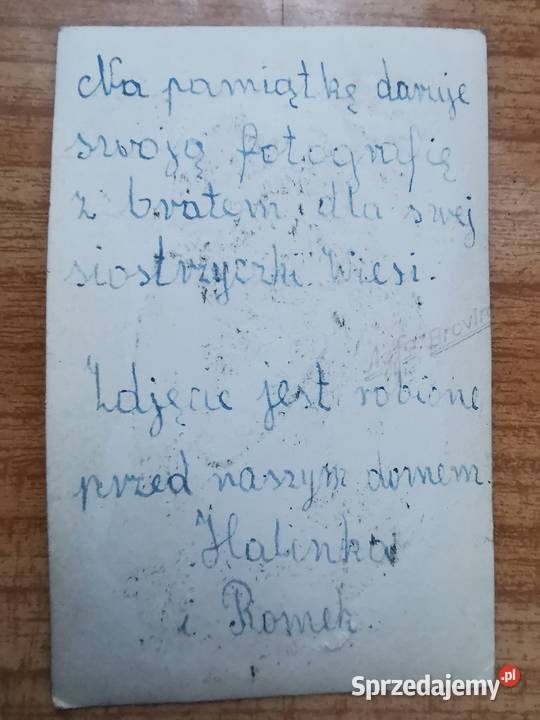 Na pamiątkę daruje
swoją fotografię
z bratem, dla swej
siostrzyczki Wiesi.
Agfa-Brovira
Zdjęcie jest robione
przed naszym domem.
Halinka
i Romek.
Sprzedajemy.pl